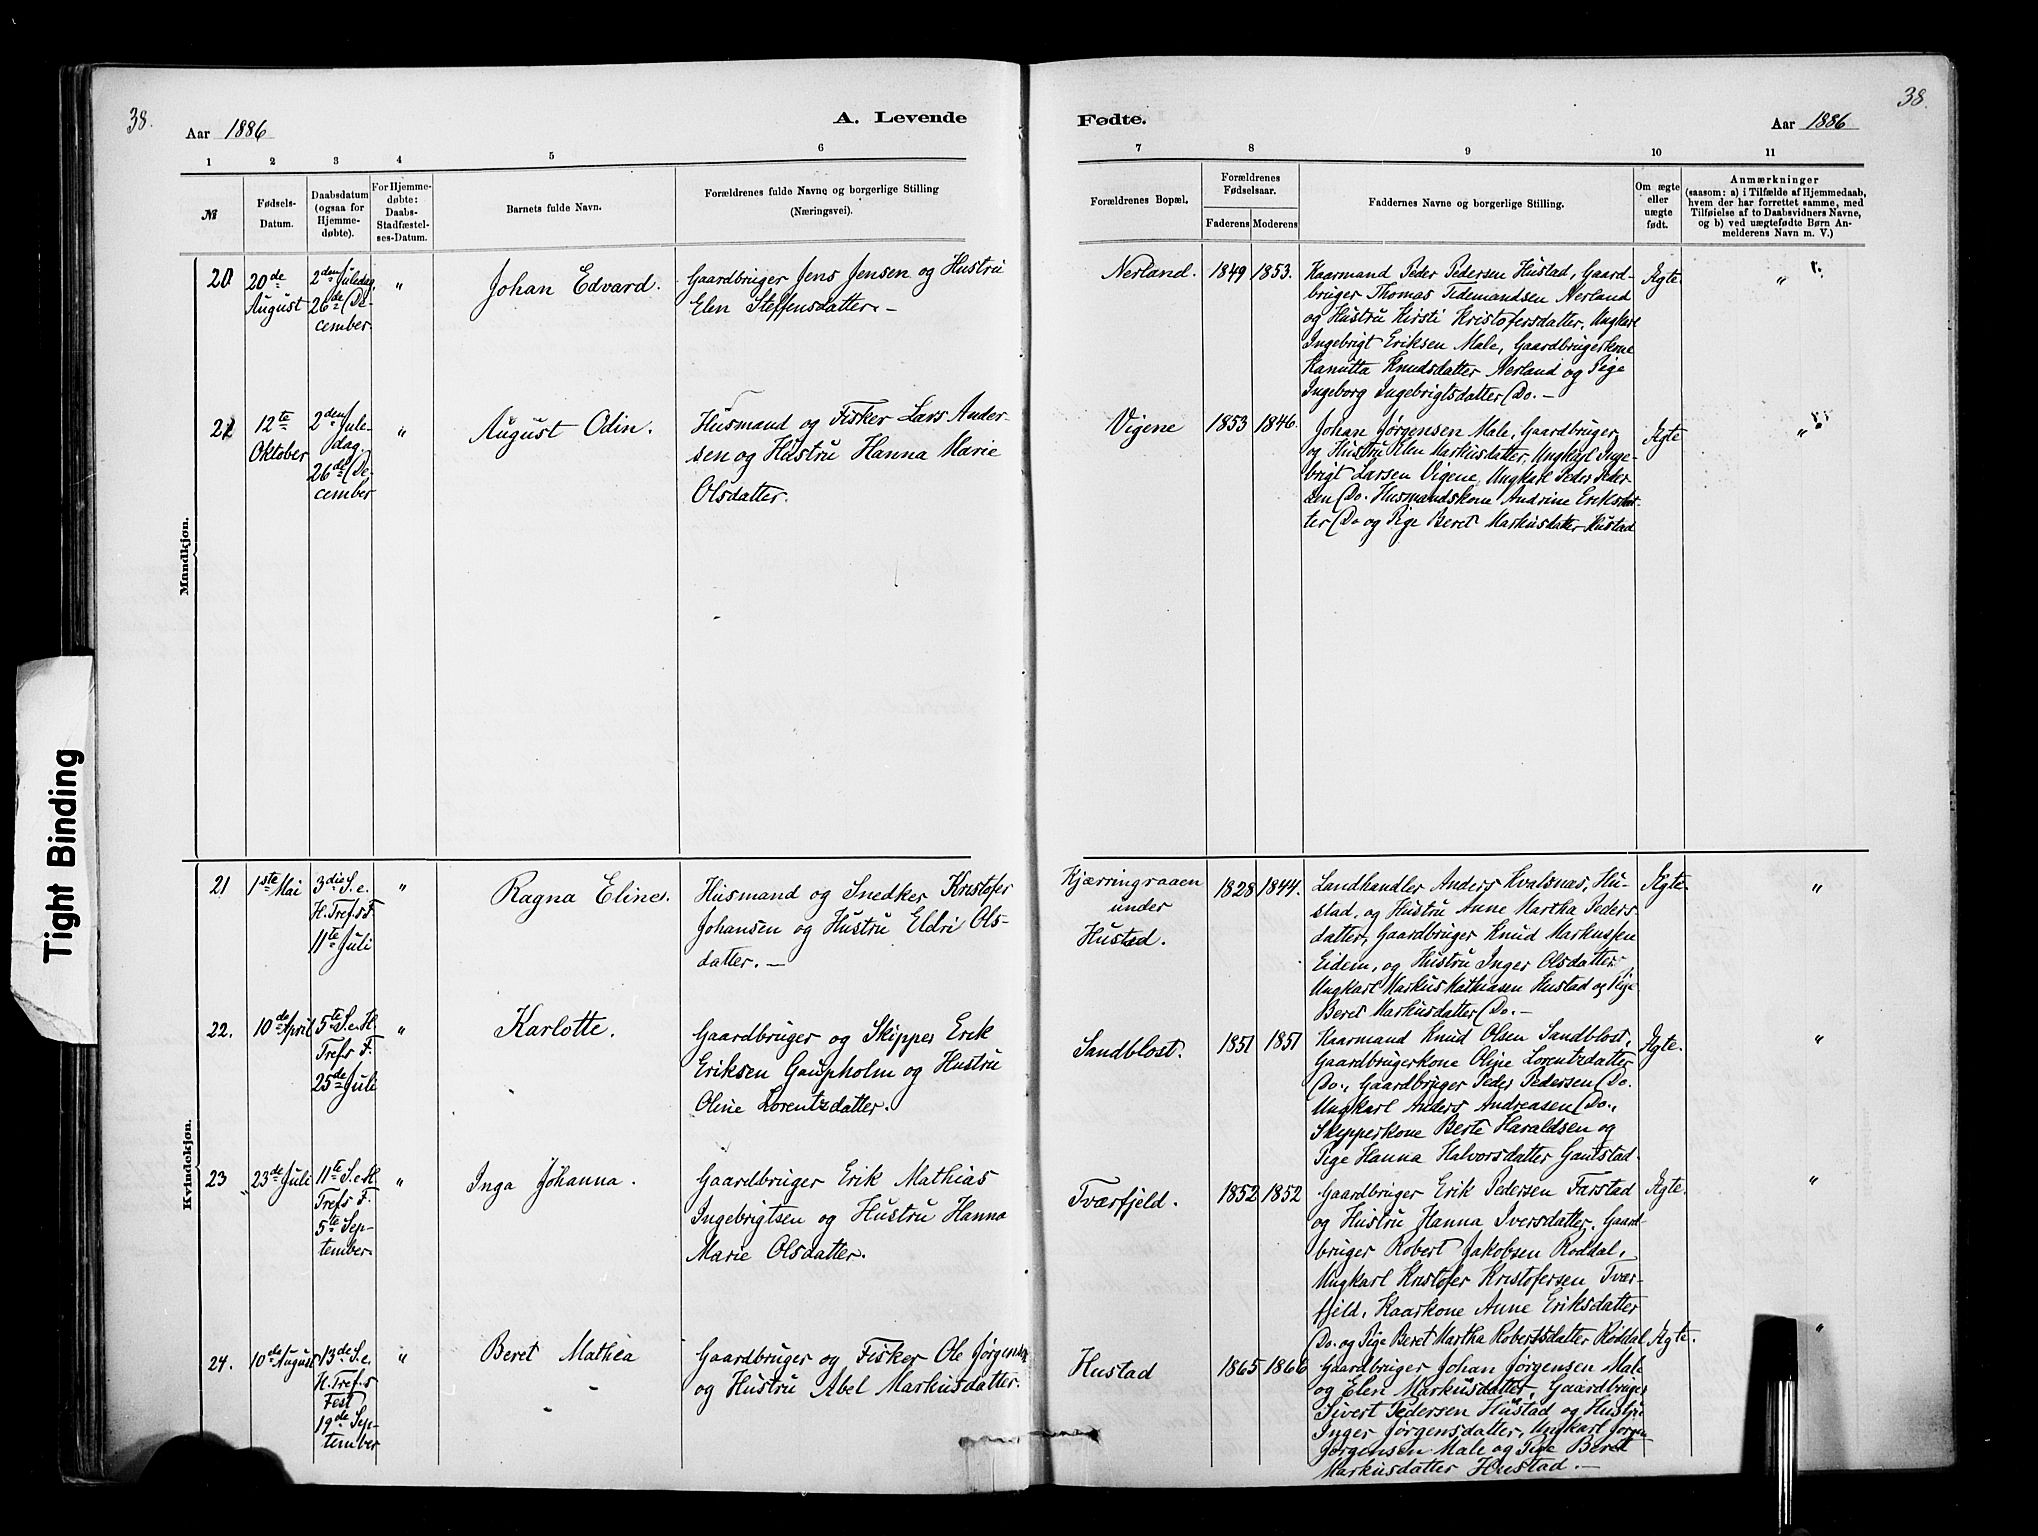 38.
Aar 1886
A. Levende
1 2 3 4 5 6
№
Fødsels-
Datum.
Daabsdatum
(ogsaa for
Hjemme-
døbte).
For Hjemme-
døbte:
Daabs-
Stadfæstel-
ses-Datum.
Barnets fulde Navn.
Forældrenes fulde Navne og borgerlige Stilling
(Næringsvei).
Mandkjøn.
20
20de
August
2den Juledag
26de De-
cember
"
Johan Edvard.
Gaardbruger Jens Jensen og Hustru
Elen Steffensdatter. –
21
12te
Oktober
2den Jule-
dag.
26de De-
cember
"
August Odin.
Husmand og Fisker Lars Ander-
sen og Hustru Hanna Marie
Olsdatter.
Kvindekjøn.
21
1ste Mai
3die S. e.
H. Tref.s F.
11te Juli
"
Ragna Eline.
Husmand og Snedker Kristofer
Johansen og Hustru Eldri Ols-
datter. –
22.
10de April
5te S. e. H.
Trefs F.
25de Juli
"
Karlotte.
Gaardbruger og Skipper Erik
Eriksen Gaupholm og Hustru
Oline Lorentzdatter.
23
23de Juli
11te S. e. H.
Trefs F.
5te Sep-
tember
"
Inga Johanna.
Gaardbruger Erik Mathias
Ingebrigtsen og Hustru Hanna
Marie Olsdatter.
24.
10de August
13de S. e.
H. Tref.s
Fest
19de Sep-
tember
"
Beret Mathea
Gaardbruger og Fisker Ole Jørgensen
og Hustru Abel Markusdatter.
38.
Fødte.
Aar 1886
7 8 9 10 11
Forældrenes Bopæl.
Forældrenes
Fødselsaar.
Faderens Moderens
Faddernes Navne og borgerlige Stilling.
Om ægte
eller
uægte
født.
Anmærkninger
(saasom: a) i Tilfælde af Hjemmedaab,
hvem der har forrettet samme, med
Tilføielse af to Daabsvidners Navne,
og b) ved uægtefødte Børn An-
melderens Navn m. V.)
Nerland. 1849 1853.
Kaarmand Peder Pedersen Hustad, Gaard-
bruger Thomas Tedemandsen Nerland
og Hustru Kirsti Kristofersdatter, Ungkarl
Ingebrigt Eriksen Male, Gaardbrugerkone
Kanutta Knudsdatter Nerland og Pige
Ingeborg Ingebrigtsdatter Do. –
Ægte.
"
Vigene 1853 1846.
Johan Jørgensen Male, Gaardbruger,
og Hustru Elen Markusdatter, Ungkarl Inge-
brigt Larsen Vigene, Ungkarl Peder Peder-
sen Do. Husmandskone Andrine Eriksdat-
ter Do og Pige Beret Markusdatter Hustad
Ægte
"
Kjærringraaen
under
Hustad.
1828 1844.
Landhandler Anders Kvalsnas, Hu-
stad, og Hustru Anne Martha Peders-
datter, Gaardbruger Knud Markussen
Eidem, og Hustru Inger Olsdatter,
Ungkarl Markus Mathiasen Hustad og Pige
Beret Markusdatter Do. –
Ægte.
"
Sandblost. 1851 1851
Kaarmand Knud Olsen Sandblost,
Gaardbrugerkone Oline Lorentzdatter
Do., Gaardbruger Peder Pedersen Do.
Ungkarl Anders Andreasen Do.,
Skipperkone Berte Haraldsen og
Pige Hanna Halvorsdatter Gaustad.
Ægte.
"
Tværfjeld. 1852 1852
Gaardbruger Erik Pedersen Farstad
og Hustru Hanna Iversdatter, Gaard-
bruger Robert Jakobsen Roddal,
Ungkarl Kristofer Kristofersen Tvær-
fjeld, Kaarkone Anne Eriksdatter
Do. og Pige Beret Martha Robertsdatter Röddal
Ægte.
"
Hustad 1865 1866
Gaardbruger Johan Jørgensen Male
og Elen Markusdatter, Gaardbruger
Sivert Pedersen Hustad og Hustru
Inger Jørgensdatter, Ungkarl Jørgen
Jørgensen Male og Pige Beret
Markusdatter Hustad. –
Ægte.
"
Tight Binding